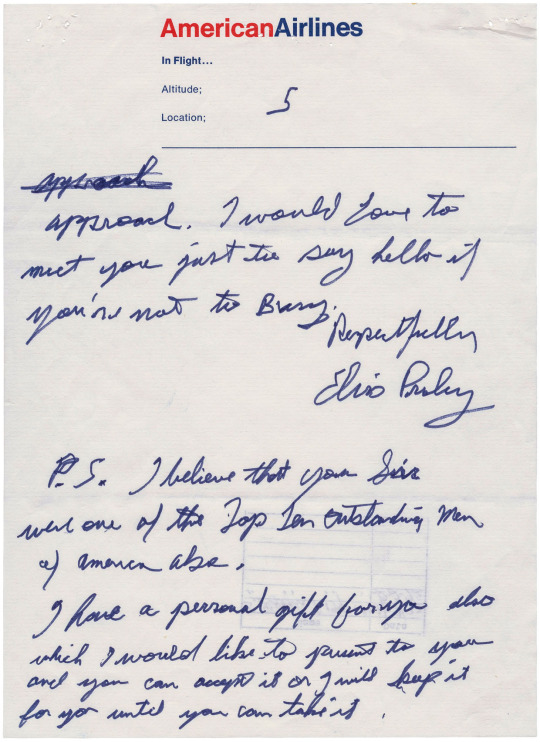 AmericanAirlines
In Flight...
Altitude;
5
Location;
approach
approach. I would love to
meet you just to say hello if
you're not to Busy.
Respectfully
Elvis Presley
P.S. I believe that you Sir
were one of the Top Ten Outstanding Men
of america also.
I have a personal gift for you also
which I would like to present to you
and you can accept it or I will keep it
for you until you can take it.